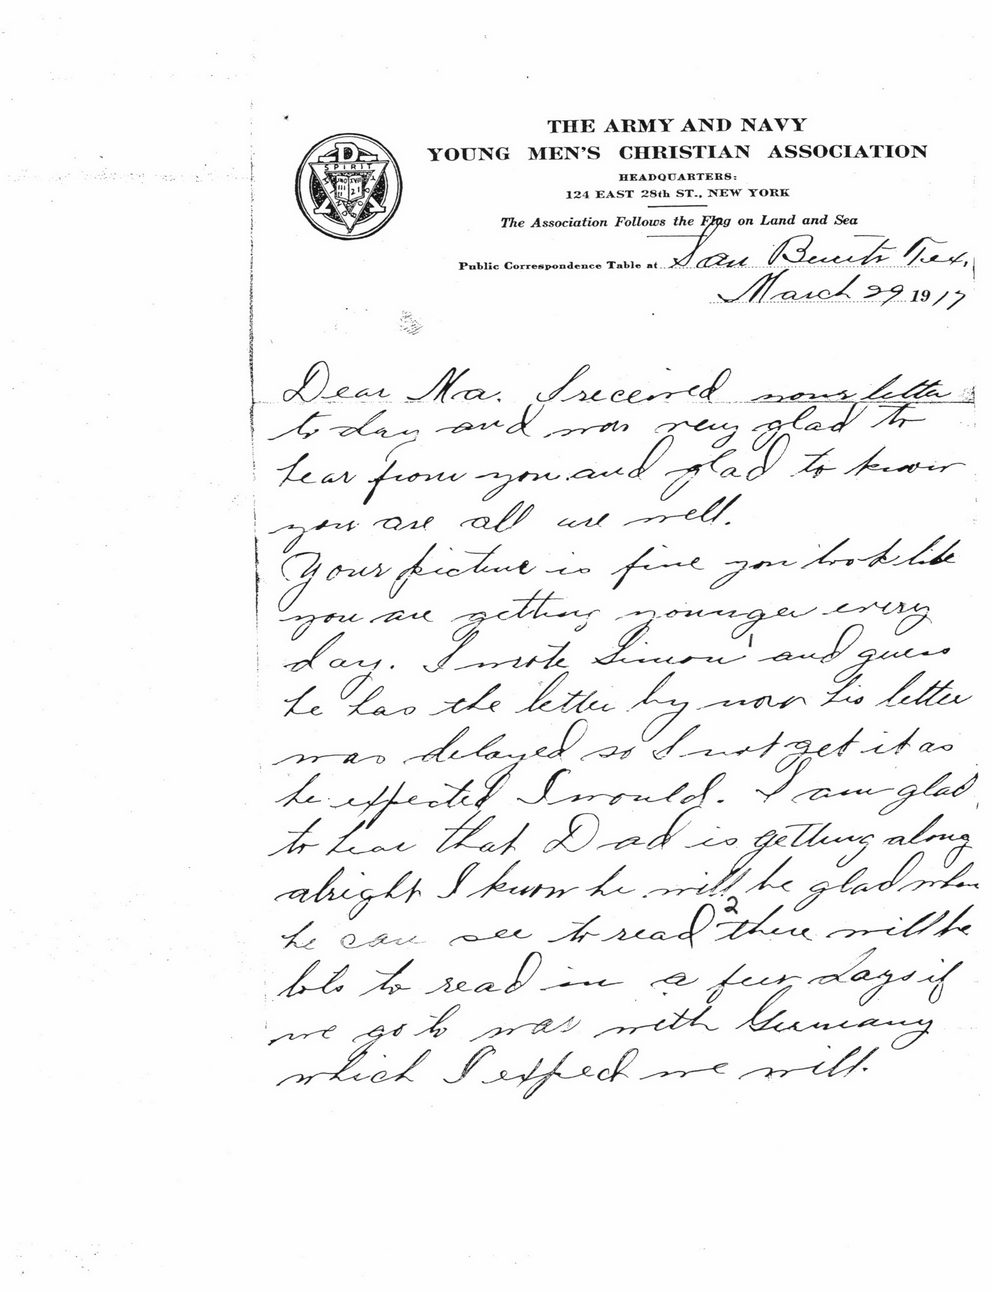 THE ARMY AND NAVY
YOUNG MEN'S CHRISTIAN ASSOCIATION
HEADQUARTERS:
124 EAST 28th ST., NEW YORK
The Association Follows the Flag on Land and Sea
Public Correspondence Table at San Benito Tex.
March 29 1917
SPIRIT
Dear Ma. I received your letter
to day and was very glad to
hear from you and glad to know
you are all are well.
Your picture is fine you look like
you are getting younger every
day. I wrote Simon and guess
he has the letter by now his letter
was delayed so I not get it as
he expected I would. I am glad
to hear that Dad is getting along
alright I know he will be glad when
he can see to read 2 there will be
lots to read in a few days if
we go to war with Germany
which I expect we will.